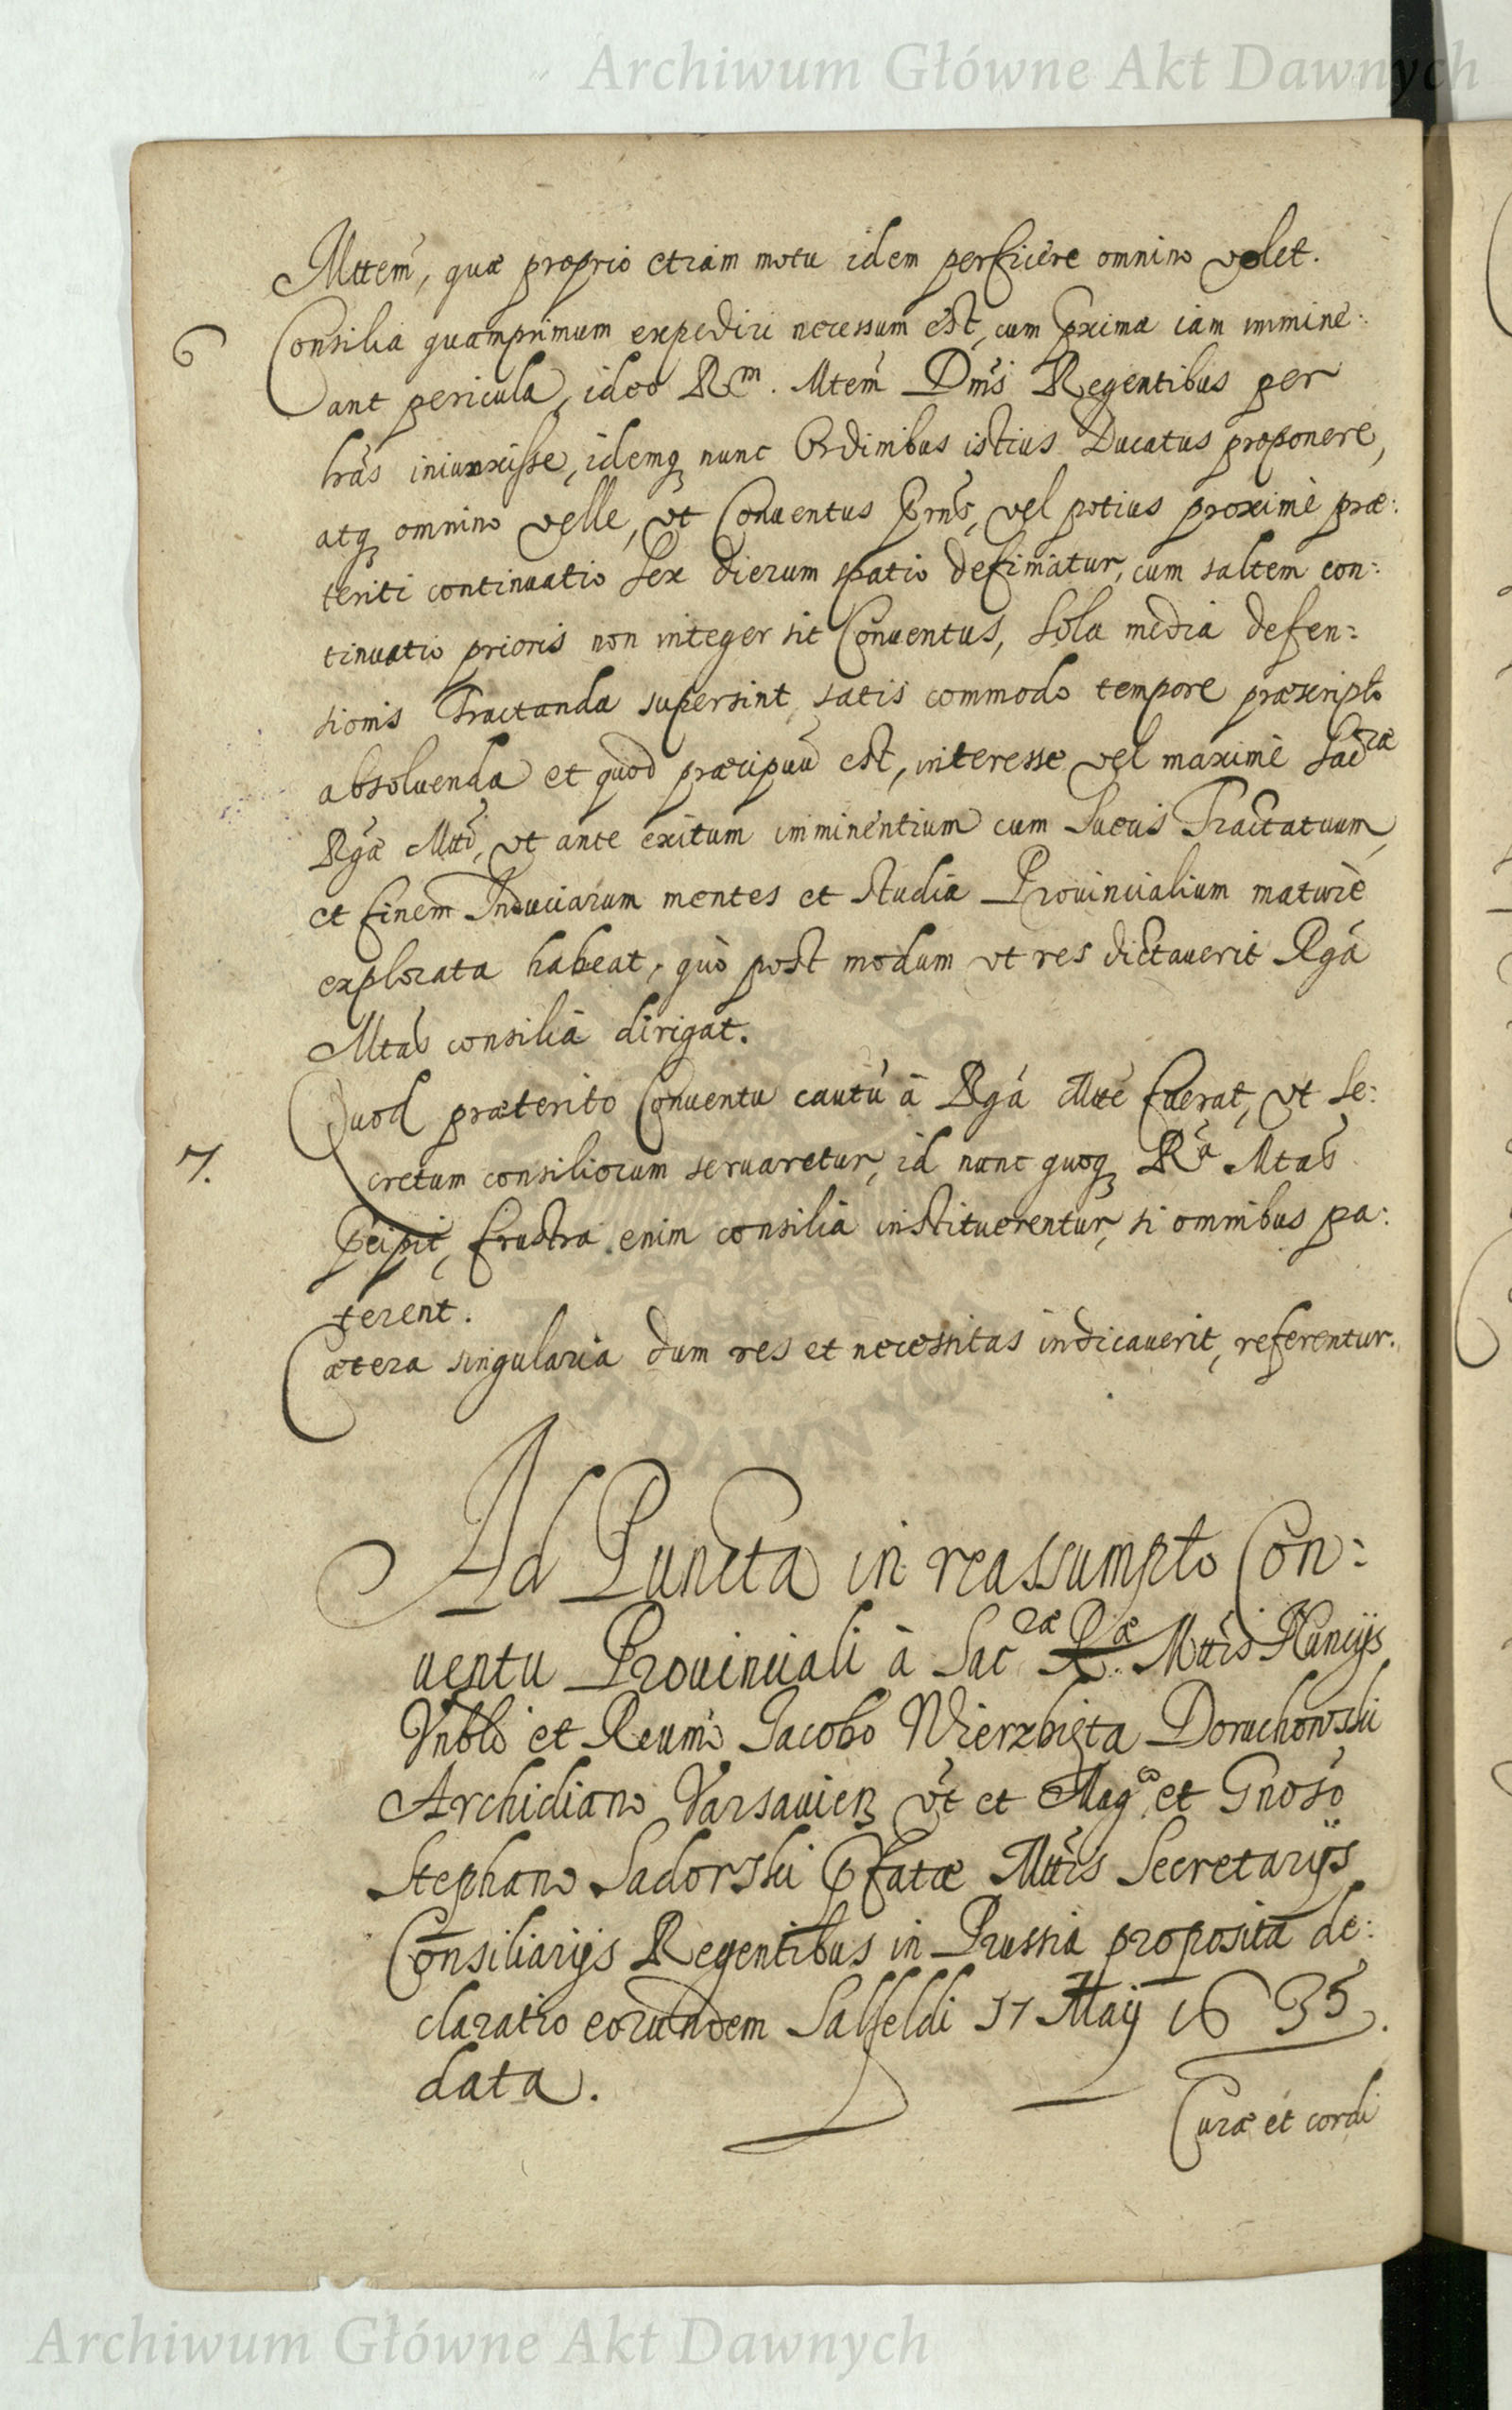 Archiwum Główne Akt Dawnych
Mttem, quæ proprio etiam motu idem perficere omnino volet.
6 Consilia quamprimum expediri necessum est, cum proxima iam immine:
ant pericula, ideo Rm. Mtem Dnis Regentibus per
lras iniunxisse, idemq nunc Ordinibus istius Ducatus proponere,
atq omnino velle, vt Conuentus prns, vel potius proximè præ:
teriti continuatio sex dierum spatio definiatur, cum saltem con:
tinuatio prioris non integer sit Conuentus, sola media defen:
sionis Tractanda supersint, satis commodo tempore præscripto
absoluenda et quod præcipuu est, interesse vel maximè Sacræ
Rgæ Mtti, vt ante exitum imminentium cum Suecis Tractatuum,
et finem Induciarum mentes et studia Prouincialium maturè
explorata habeat, quò post modum vt res dictauerit Rga
Mtas consilia dirigat.
7. Quod præterito Conuentu cautu à Rga Mtte fuerat, vt Se:
cretum consiliorum seruaretur, id nunc quoq Ra Mtas
pcipit, frustra enim consilia instituerentur, si omnibus pa:
terent.
Cætera singularia dum res et necessitas indicauerit, referentur.
Ad Puncta in reassumpto Con:
uentu Prouinciali à Sacræ Ræ Mttis Nuncijs
Vnbli et Reumo Jacobo Wierzbięta Doruchowski
Archidiano Varsauien vt et Magco et Gnoso
Stephano Sadorski pfatæ Mttis Secretarijs
Consiliarijs Regentibus in Prussia proposita de:
claratio eorundem Salfeldi 17 Maij 1635.
data.
Curæ et cordi
Archiwum Główne Akt Dawnych